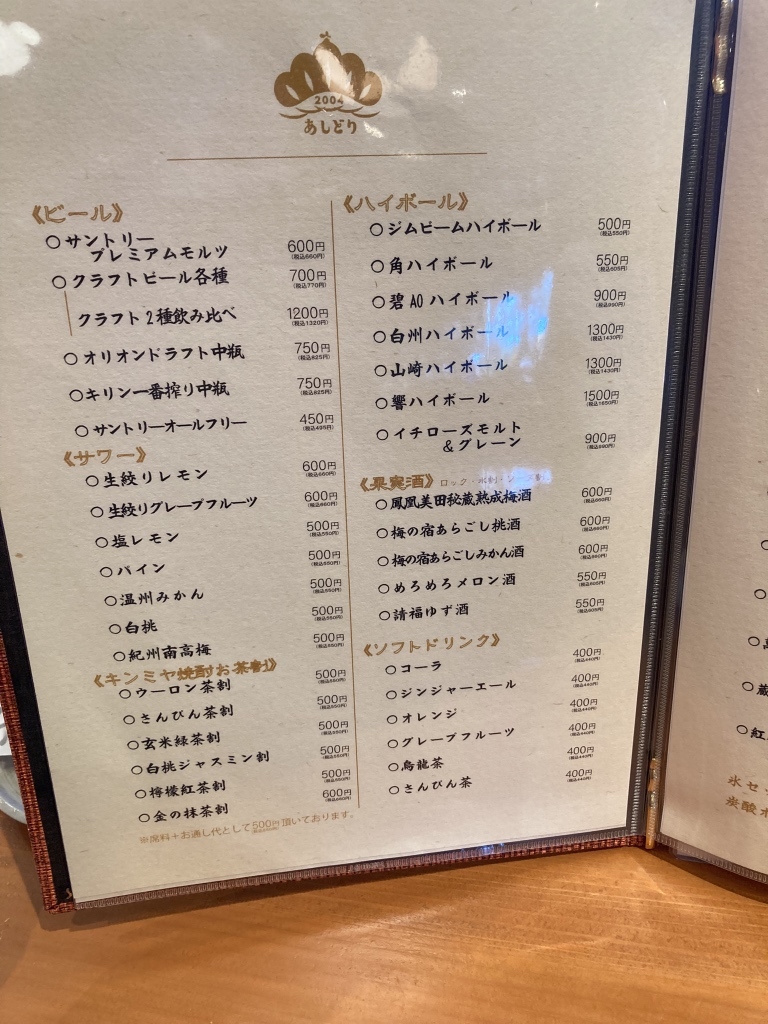 2004
あしどり
《ビール》
○サントリー
プレミアムモルツ 600円
(税込660円)
○クラフトビール各種 700円
(税込770円)
クラフト2種飲み比べ 1200円
(税込1320円)
○オリオンドラフト中瓶 750円
(税込825円)
○キリン一番搾り中瓶 750円
(税込825円)
○サントリーオールフリー 450円
(税込495円)
《サワー》
○生絞りレモン 600円
(税込660円)
○生絞りグレープフルーツ 600円
(税込660円)
○塩レモン 500円
(税込550円)
○パイン 500円
(税込550円)
○温州みかん 500円
(税込550円)
○白桃 500円
(税込550円)
○紀州南高梅 500円
(税込550円)
《キンミヤ焼酎お茶割》
○ウーロン茶割 500円
(税込550円)
○さんぴん茶割 500円
(税込550円)
○玄米緑茶割 500円
(税込550円)
○白桃ジャスミン割 500円
(税込550円)
○檸檬紅茶割 500円
(税込550円)
○金の抹茶割 600円
(税込660円)
※席料+お通し代として500円頂いております。
《ハイボール》
○ジムビームハイボール 500円
(税込550円)
○角ハイボール 550円
(税込605円)
○碧AOハイボール 900円
(税込990円)
○白州ハイボール 1300円
(税込1430円)
○山崎ハイボール 1300円
(税込1430円)
○響ハイボール 1500円
(税込1650円)
○イチローズモルト
&グレーン 900円
(税込990円)
《果実酒》ロック・水割・ソーダ割
○鳳凰美田秘蔵熟成梅酒 600円
(税込660円)
○梅の宿あらごし桃酒 600円
(税込660円)
○梅の宿あらごしみかん酒 600円
(税込660円)
○めろめろメロン酒 550円
(税込605円)
○請福ゆず酒 550円
(税込605円)
《ソフトドリンク》
○コーラ 400円
(税込440円)
○ジンジャーエール 400円
(税込440円)
○オレンジ 400円
(税込440円)
○グレープフルーツ 400円
(税込440円)
○烏龍茶 400円
(税込440円)
○さんぴん茶 400円
(税込440円)
○蔵
○紅
氷セッ
炭酸ボ